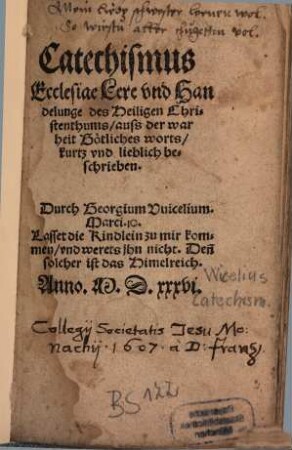 Mein liebe schwester lernen wol.
So wirstu aller tugetten vol.
Catechismus
Ecclesiae Lere vnd Han
delunge des Heiligen Chri-
stenthums/ auss der war
heit Götliches worts/
kurtz vnd lieblich be-
schrieben.
Durch Georgium Vuicelium.
Marci .10.
Lasset die Kindlein zu mir kom-
men/ vnd werets jhn nicht. Deñ
solcher ist das Himelreich.
Wicelius
Anno. M. D. xxxvi.
Catechism.
Collegij Societatis Jesu Mo-
nachij. 1607. à D. Franz
BS122